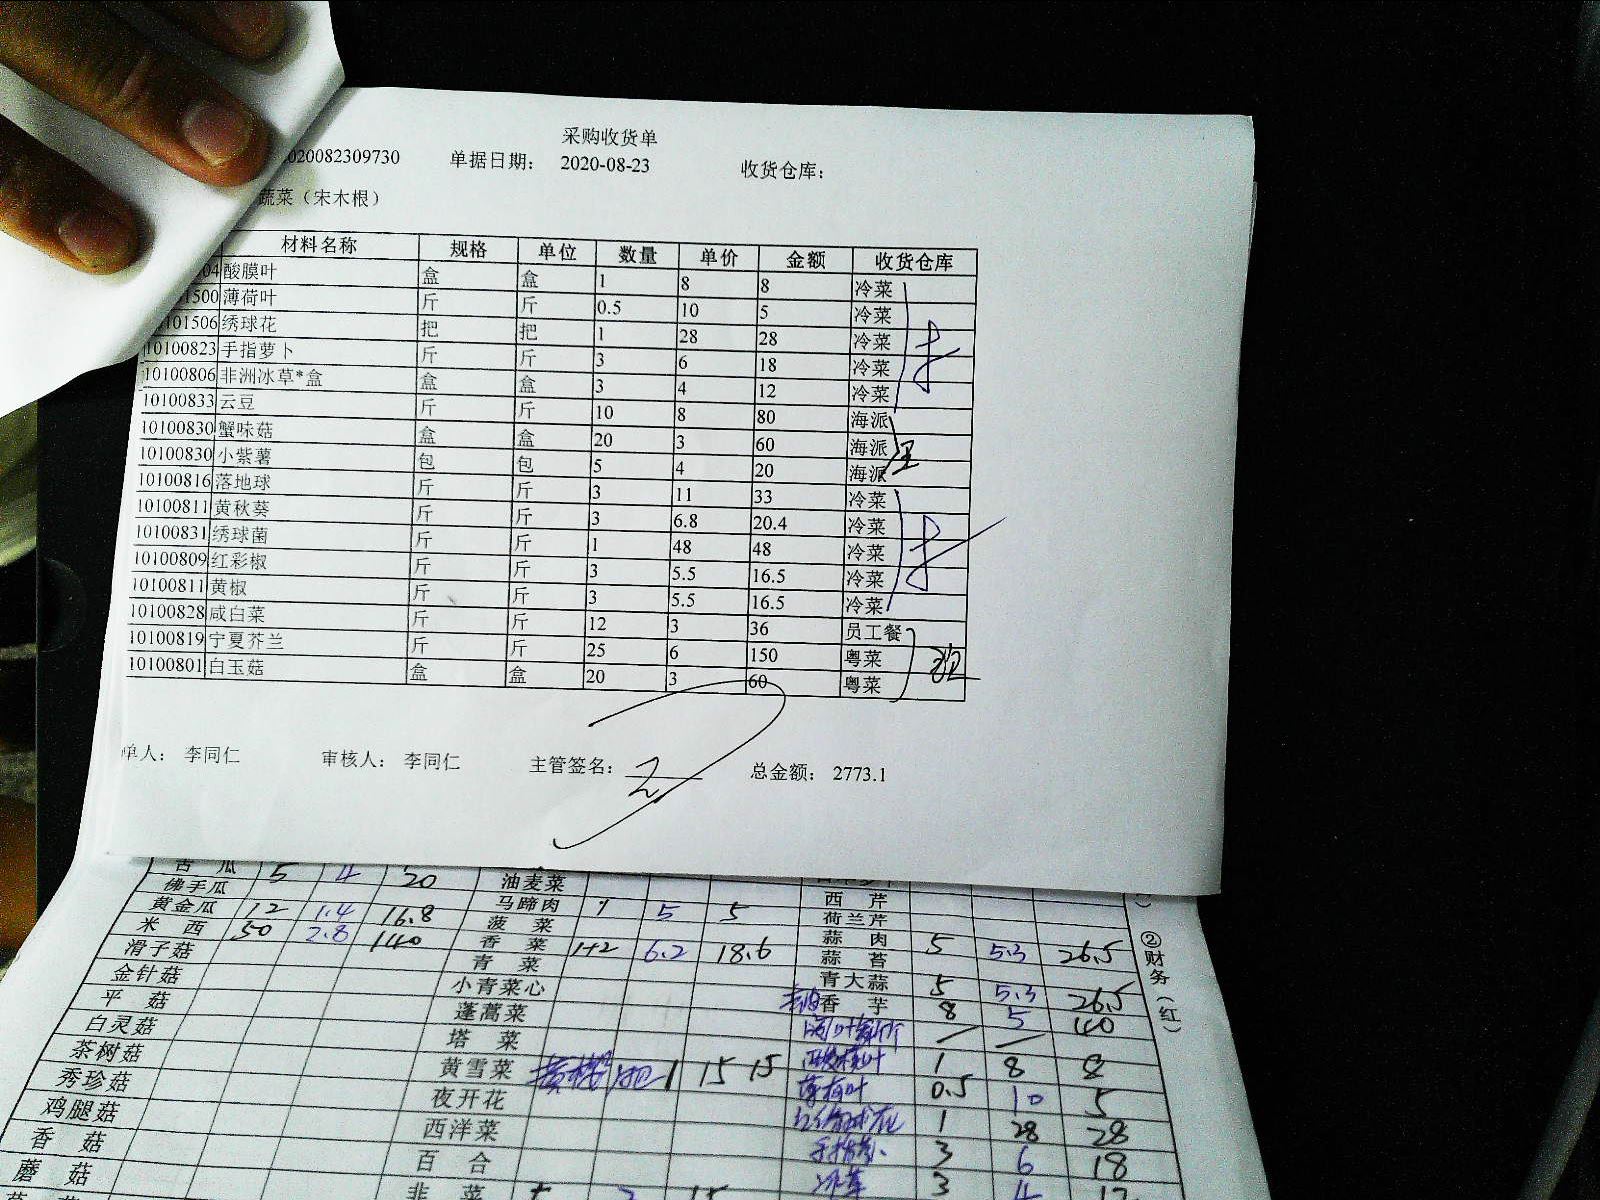 采购收货单
020082309730 单据日期： 2020-08-23 收货仓库：
蔬菜（宋木根）
材料名称 规格 单位 数量 单价 金额 收货仓库
04 酸膜叶 盒 盒 1 8 8 冷菜
1500 薄荷叶 斤 斤 0.5 10 5 冷菜
101506 绣球花 把 把 1 28 28 冷菜
10100823 手指萝卜 斤 斤 3 6 18 冷菜
10100806 非洲冰草*盒 盒 盒 3 4 12 冷菜
10100833 云豆 斤 斤 10 8 80 海派
10100830 蟹味菇 盒 盒 20 3 60 海派
10100830 小紫薯 包 包 5 4 20 海派
10100816 落地球 斤 斤 3 11 33 冷菜
10100811 黄秋葵 斤 斤 3 6.8 20.4 冷菜
10100831 绣球菌 斤 斤 1 48 48 冷菜
10100809 红彩椒 斤 斤 3 5.5 16.5 冷菜
10100811 黄椒 斤 斤 3 5.5 16.5 冷菜
10100828 咸白菜 斤 斤 12 3 36 员工餐
10100819 宁夏芥兰 斤 斤 25 6 150 粤菜
10100801 白玉菇 盒 盒 20 3 60 粤菜
单人： 李同仁 审核人： 李同仁 主管签名： 总金额： 2773.1
苦瓜 5 4 20 油麦菜
佛手瓜 马蹄肉 1 5 5 西芹
黄金瓜 12 1.4 16.8 菠菜 荷兰芹
米西 50 2.8 140 香菜 1+2 6.2 18.6 蒜肉 5 5.3 26.5
滑子菇 青菜 蒜苔
金针菇 小青菜心 青大蒜 5 5.3 26.5
平菇 蓬蒿菜 香芋 8 5 40
白灵菇 塔菜
茶树菇 黄雪菜 1 15 15 1 8 8
秀珍菇 夜开花 薄荷叶 0.5 10 5
鸡腿菇 西洋菜 1 28 28
香菇 百合 3 6 18
蘑菇 韭菜 冰草 3 4 12
②财务（红）